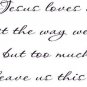 Jesus loves
the way we
but too much
leave us this